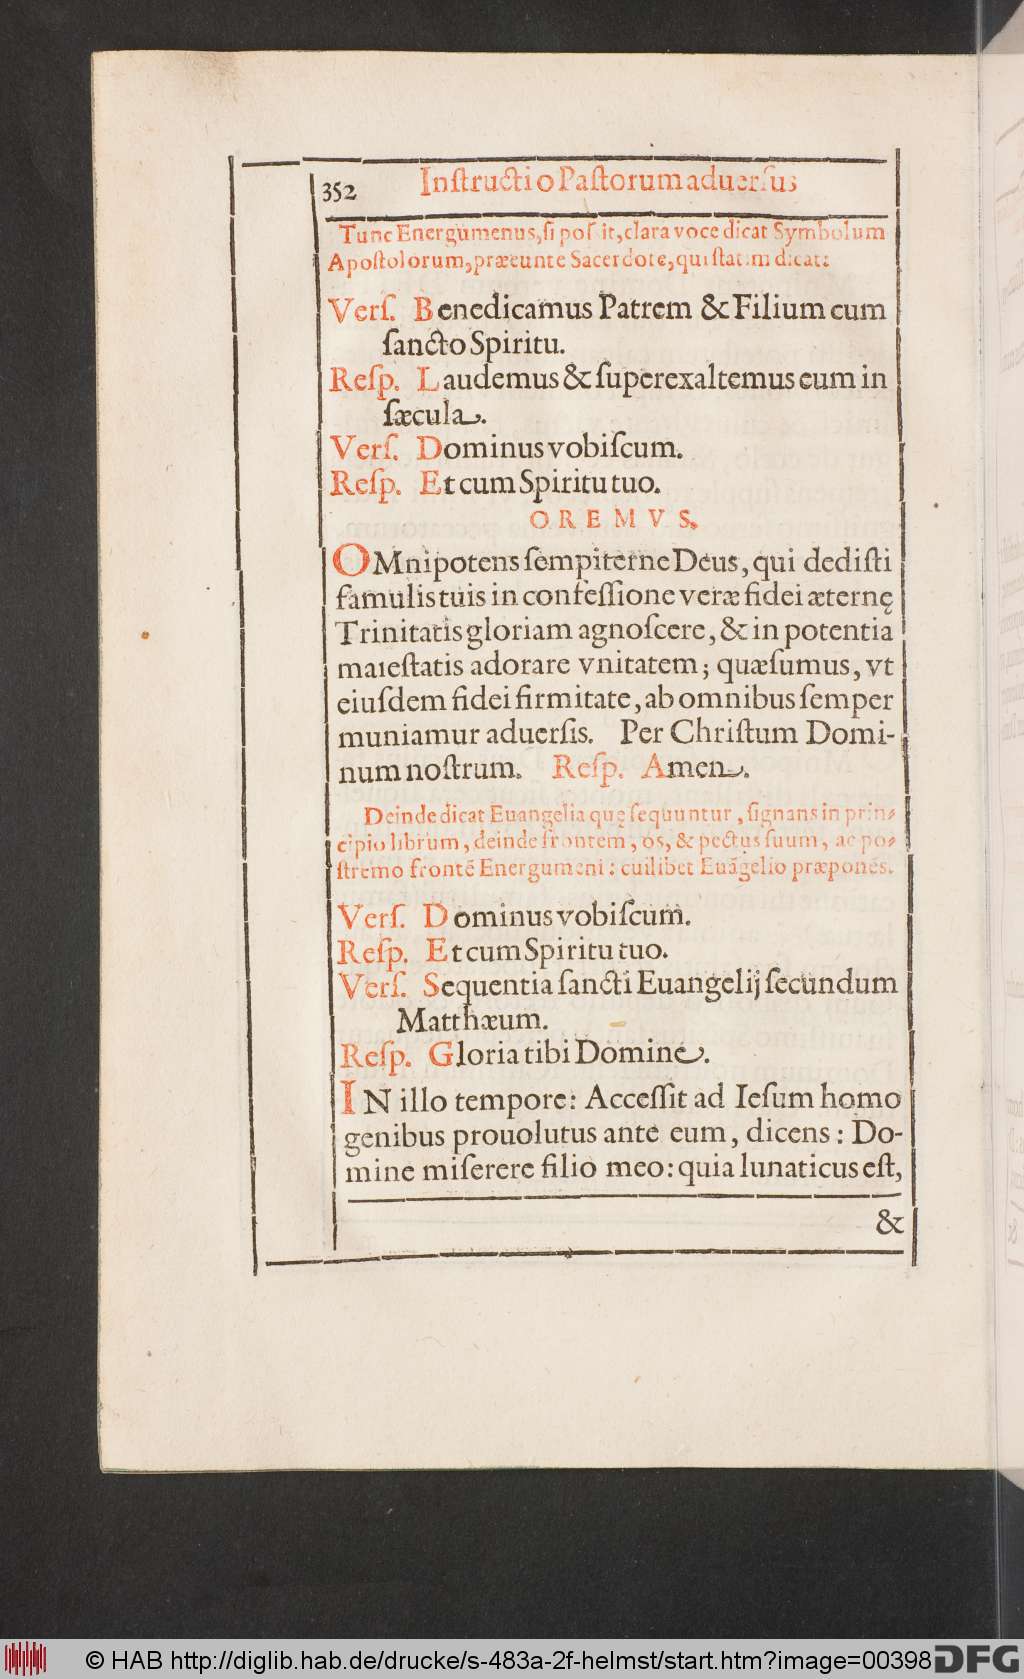 352 Instructio Pastorum aduersus
Tunc Energumenus, si possit, clara voce dicat Symbolum
Apostolorum, præeunte Sacerdote, qui statim dicat:
Verſ. Benedicamus Patrem & Filium cum
ſancto Spiritu.
Reſp. Laudemus & ſuperexaltemus eum in
ſæcula.
Verſ. Dominus vobiſcum.
Reſp. Et cum Spiritu tuo.
OREMVS.
OMnipotens ſempiterne Deus, qui dediſti
famulis tuis in confeſſione veræ fidei æternę
Trinitatis gloriam agnoſcere, & in potentia
maieſtatis adorare vnitatem; quæſumus, vt
eiuſdem fidei firmitate, ab omnibus ſemper
muniamur aduerſis. Per Chriſtum Domi-
num noſtrum. Reſp. Amen.
Deinde dicat Euangelia quę ſequuntur, ſignans in prin-
cipio librum, deinde frontem, os, & pectus ſuum, ac po-
ſtremo frontē Energumeni: cuilibet Euāgelio præponēs.
Verſ. Dominus vobiſcum.
Reſp. Et cum Spiritu tuo.
Verſ. Sequentia ſancti Euangelij ſecundum
Matthæum.
Reſp. Gloria tibi Domine.
IN illo tempore: Acceſſit ad Ieſum homo
genibus prouolutus ante eum, dicens: Do-
mine miſerere filio meo: quia lunaticus eſt,
&
© HAB http://diglib.hab.de/drucke/s-483a-2f-helmst/start.htm?image=00398 DFG